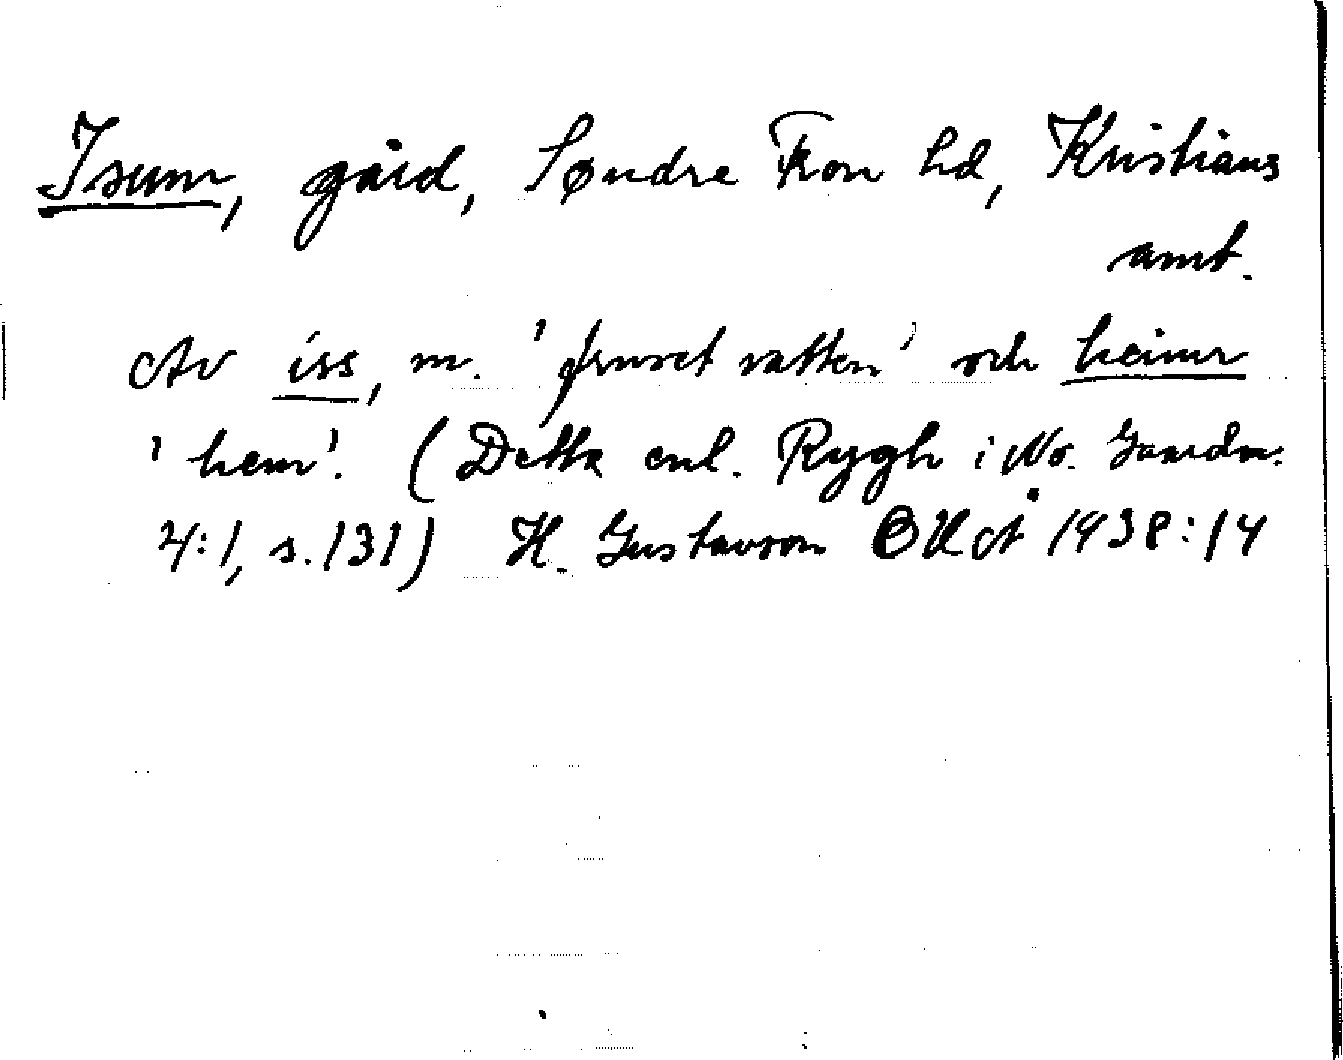 Isum, gård, Søndre Fron hd, Kristians
amt.
Av íss, m. 'fruset vatten' och heimr
'hem'. (Detta enl. Rygh i No. Gaardn.
4:1, s. 131) H. Gustavson OUÅ 1938:14